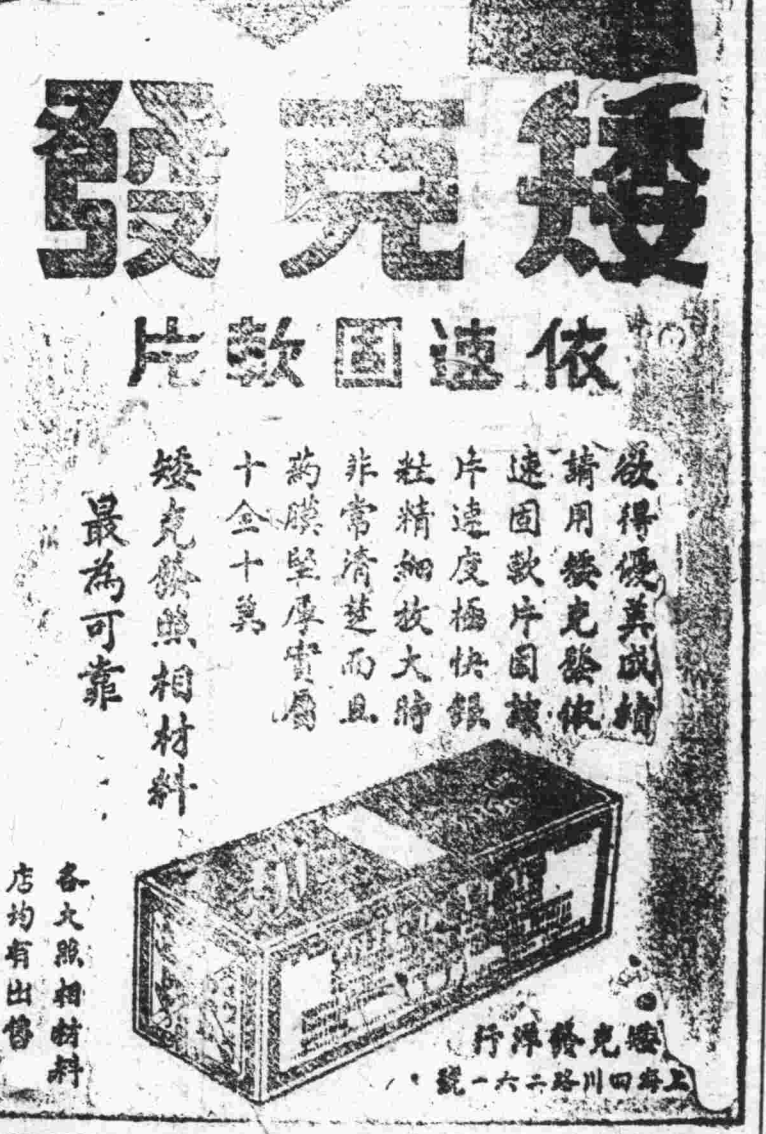 矮克發
依速固軟片
欲得優美成績
請用矮克發依
速固軟片因該
片速度極快銀
粒精細放大時
非常清楚而且
药膜堅厚實屬
十全十美
矮克發照相材料
最為可靠
各大照相材料
店均有出售
矮克發洋行
上海四川路二六一號